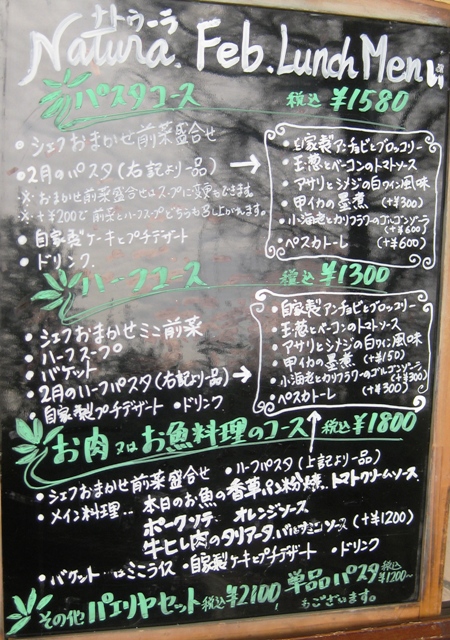 ナトゥーラ
Natura. Feb. Lunch Menu
パスタコース 税込 ¥1580
・シェフおまかせ前菜盛合せ
・2月のパスタ(右記より一品) →
※おまかせ前菜盛合せはスープに変更もできます。
※+¥200で前菜とハーフスープどちらも召し上がれます。
・自家製ケーキとプチデザート
・ドリンク
・自家製アンチョビとブロッコリー
・玉葱とベーコンのトマトソース
・アサリとシメジの白ワイン風味
・甲イカの墨煮 (+¥300)
・小海老とカリフラワーのゴルゴンゾーラ (+¥600)
・ペスカトーレ (+¥600)
ハーフコース 税込 ¥1300
・シェフおまかせミニ前菜
・ハーフスープ
・バゲット
・2月のハーフパスタ(右記より一品) →
・自家製プチデザート ・ドリンク
・自家製アンチョビとブロッコリー
・玉葱とベーコンのトマトソース
・アサリとシメジの白ワイン風味
・甲イカの墨煮 (+¥150)
・小海老とカリフラワーのゴルゴンゾーラ (+¥300)
・ペスカトーレ (+¥300)
お肉又はお魚料理のコース 税込 ¥1800
・シェフおまかせ前菜盛合せ ・ハーフパスタ(上記より一品)
・メイン料理‥本日のお魚の香草パン粉焼 トマトクリームソース
ポークソテー オレンジソース
牛ヒレ肉のタリアータ バルサミコソース (+¥1200)
・バゲット 又はミニライス ・自家製ケーキとプチデザート ・ドリンク
その他 パエリヤセット 税込 ¥2100 単品パスタ 税込 ¥1200~
もございます。